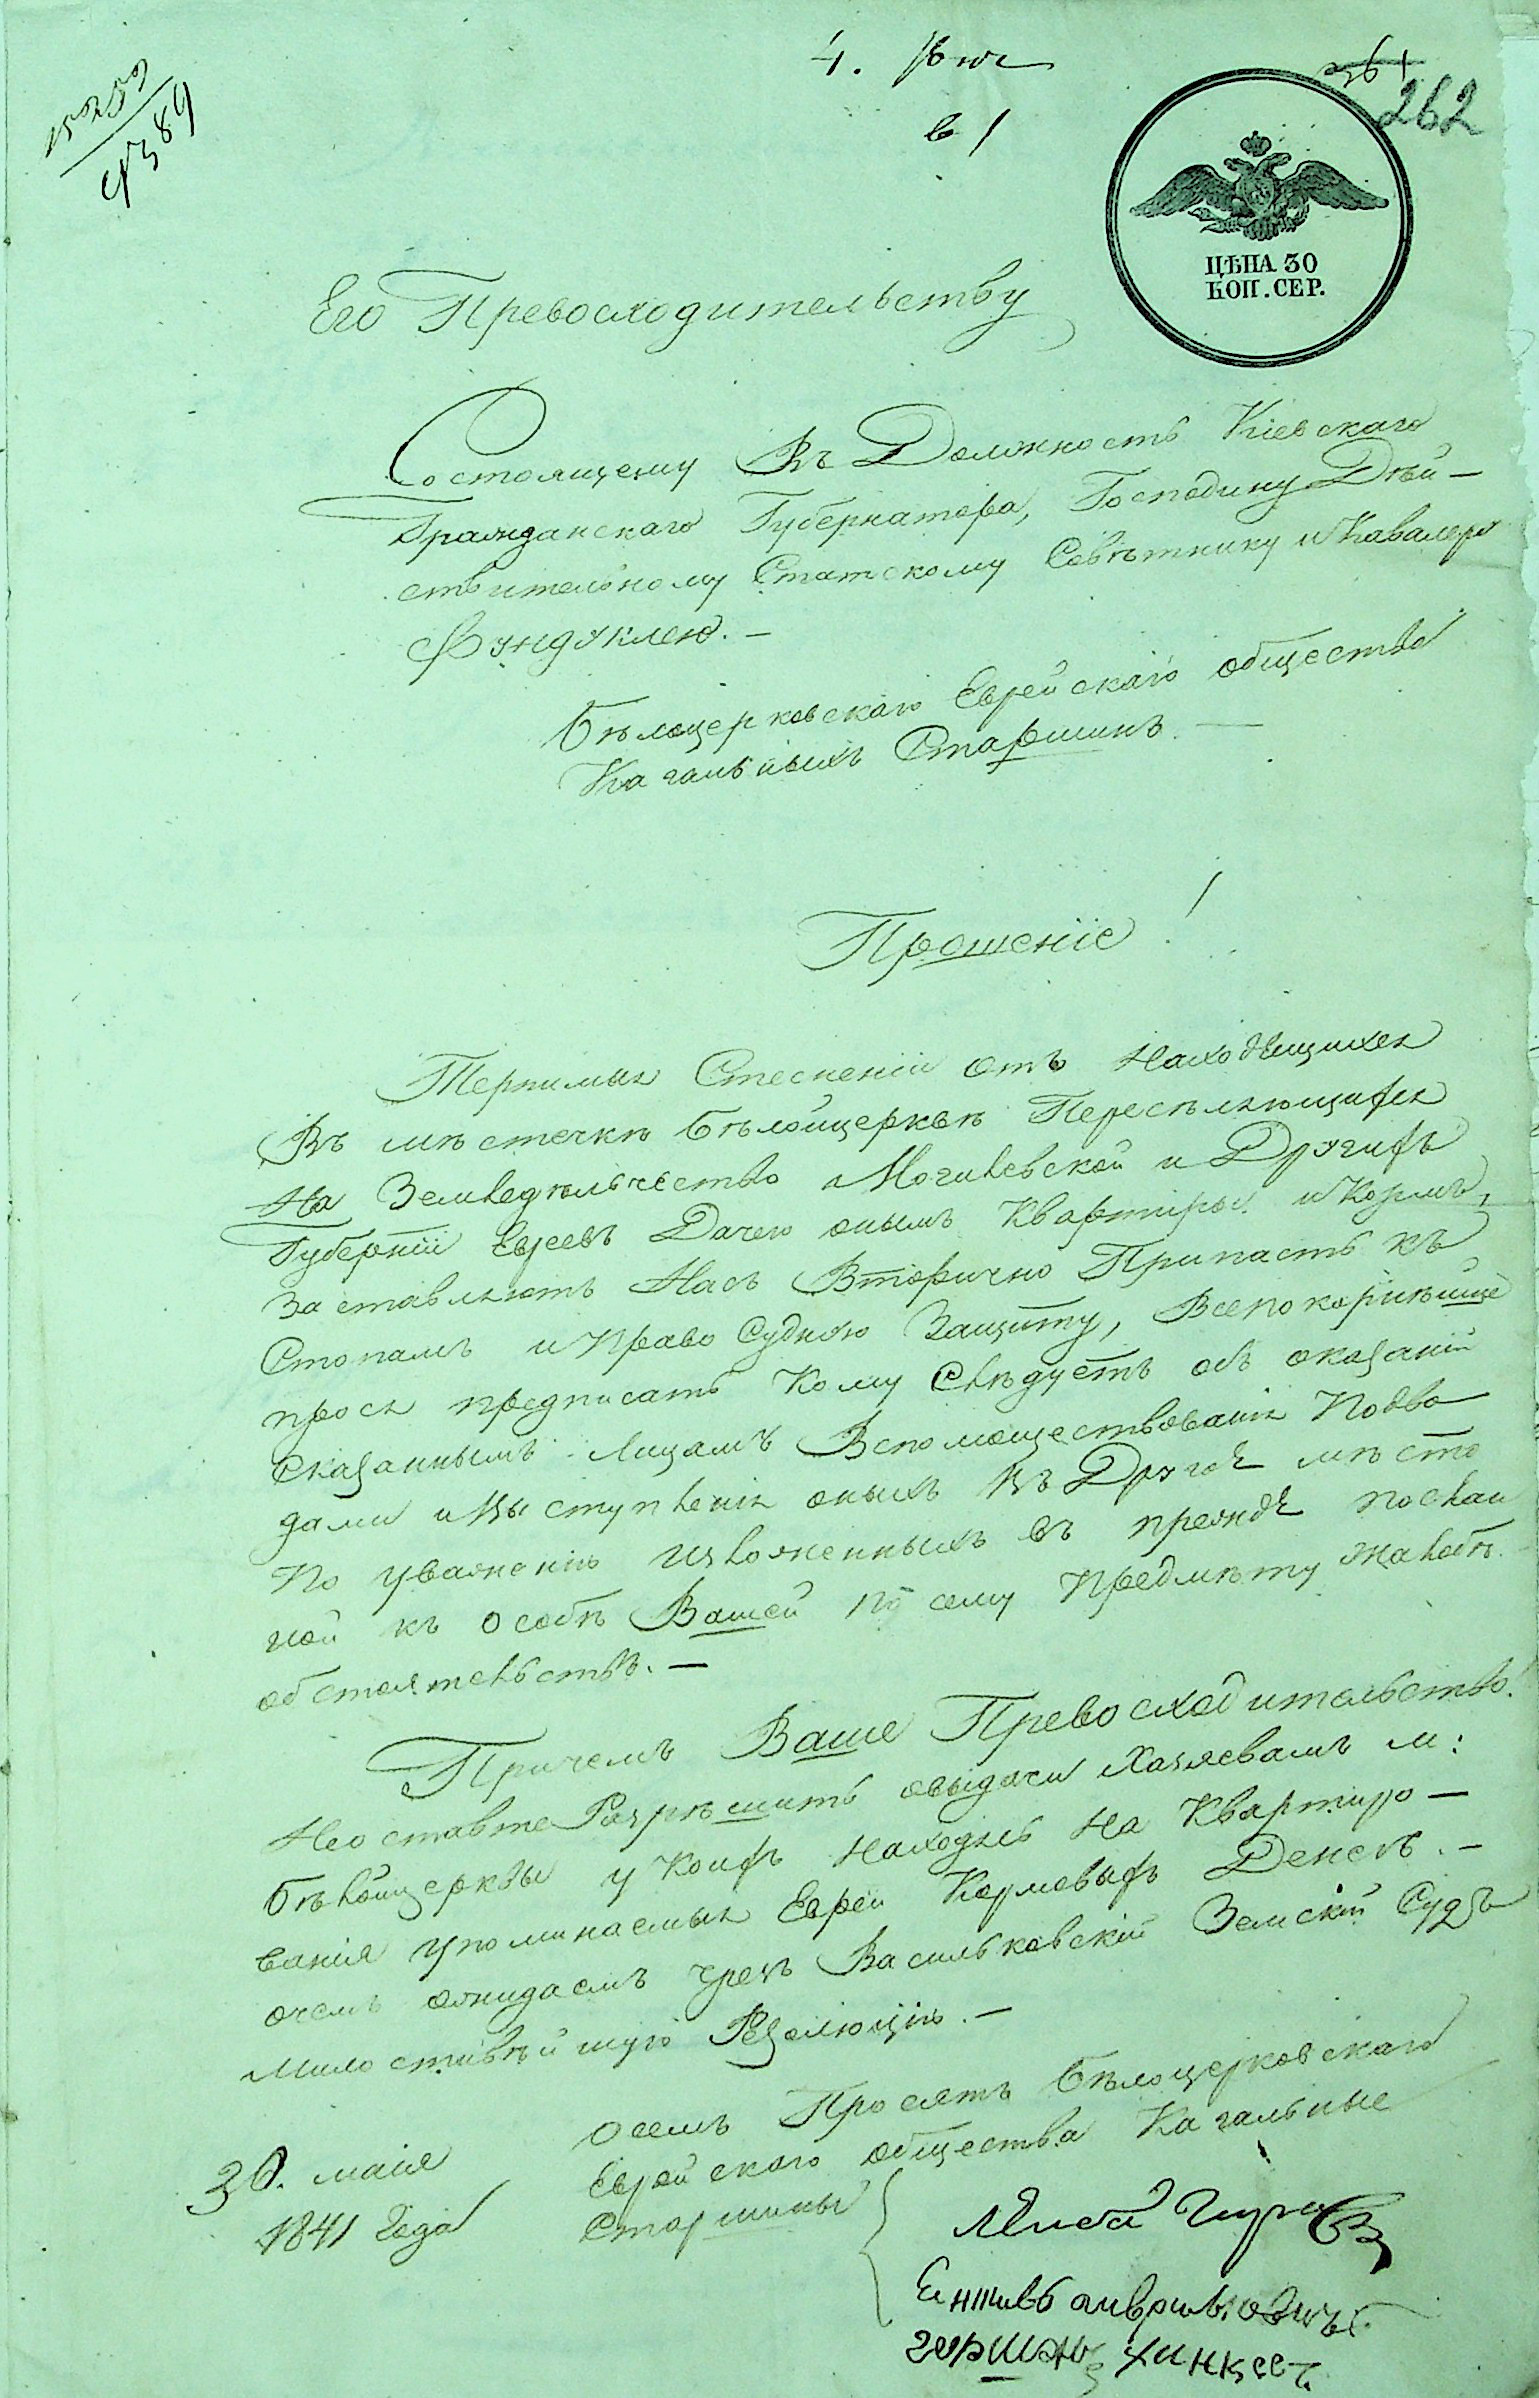 15259
4389
4. Июн
в 1
361
262
ЦѢНА 30
КОП. СЕР.
Его Превосходительству
Состоящему Въ Должность Кіевскаго
Гражданскаго Губернатора, Господину Дѣй-
ствительному Статскому Совѣтнику и Кавалеру
Фундуклею. -
Бѣлоцерковскаго Еврейскаго общества
Кагальныхъ Старшинъ. -
Прошеніе!
Терпимыя Стесненіи отъ Находящихся
Въ мѣстечкѣ Бѣлойцерквѣ Переселяющихся
На Земледѣльчество Могилевской и Другихъ
Губерніи Евреевъ Дачею онымъ Квартиры и Кормъ,
Заставляютъ Насъ Вторично Припасть къ
Стопамъ и Правосудною Защиту, Всепокорнѣйше
прося предписать Кому Слѣдуетъ объ оказаніи
Сказаннымъ Лицамъ Вспомоществованія Подво
дами и Выступленія оныхъ Въ Другое мѣсто
По уваженію изложенныхъ въ прежде послан
ной къ Особѣ Вашей по сему Предмѣту жалобѣ
обстоятельствъ. -
Причемъ Ваше Превосходительство!
Неоставте Разрѣшить овыдачи Хозяевамъ м:
Бѣлойцерквы у Коихъ Находясь На Квартиро-
ванія упоминаемыя Евреи Кормовыхъ Денегъ. -
очемъ ожидаемъ чрезъ Васильковскій Земскій Судъ
Милостивѣйшую Резолюцію. -
Осемъ Просятъ Бѣлоцерковскаго
Еврейского общества Кагальные
Старшины
30. маія
1841 Года